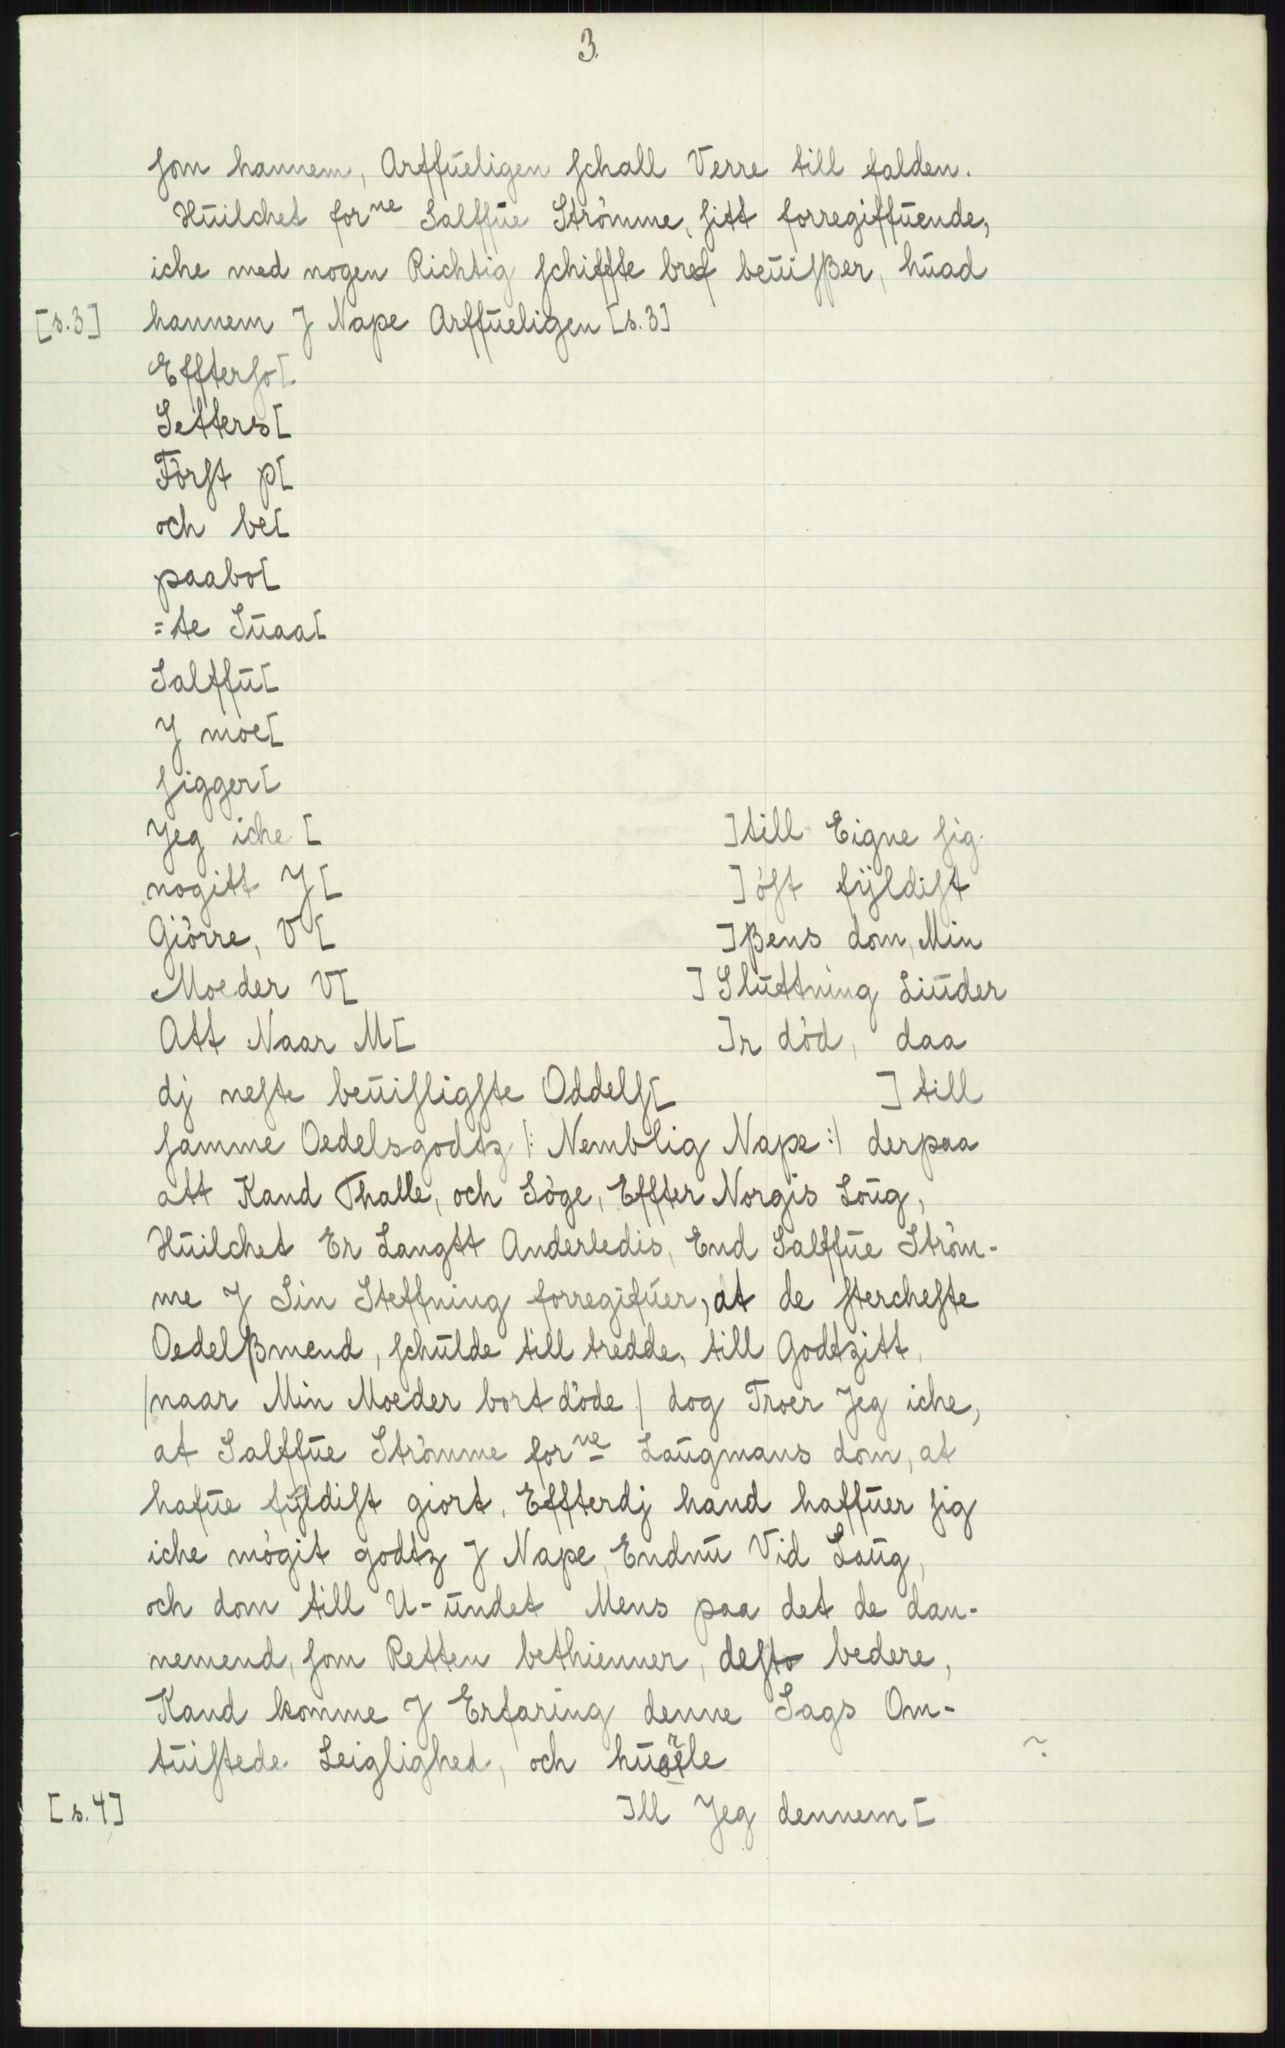 3.
som hannem, Arffueligen schall Verre till falden.
Huilchet forne Salffue Strømme, sitt forregiffuende,
iche med nogen Richtig schiffte bref beuisßer, huad
[s.3] hannem J Nape Arffueligen [s.3]
Effterso[
Setters[
Først p[
och be[
paabo[
=te Suaa[
Salffu[
J moe[
sigger[
Jeg iche [ ]till Eigne sig.
nogitt J[ ]øst fyldist
Giørre, V[ ]ßens dom, Min
Moeder V[ ]Sluttning Liuder
Att Naar M[ ]r død, daa
dj neste beuisligste Oddels[ ]till
samme Oedelsgodtz |: Nemblig Nape :| derpaa
att Kand Thalle, och Søge, Effter Norgis Loug,
Huilchet Er Langtt Anderledis, End Salffue Strøm-
me J Sin Steffning forregifuer, at de stercheste
Oedelßmend, schulde till tredde, till Godtzitt,
|naar Min Moeder bort døde| dog Troer Jeg iche,
at Salffue Strømme forne Laugmans dom, at
hafue fyldist giort, Effterdj hand haffuer sig
iche møgit godtz J Nape, Endnu Vid Loug,
och dom till U-undet Mens paa det de dan-
nemend, som Retten bethienner, desto bedere,
Kand komme J Erfaring denne Sags Om-
tuistede Leiglighed, och
[s.4] ]ll Jeg dennem[